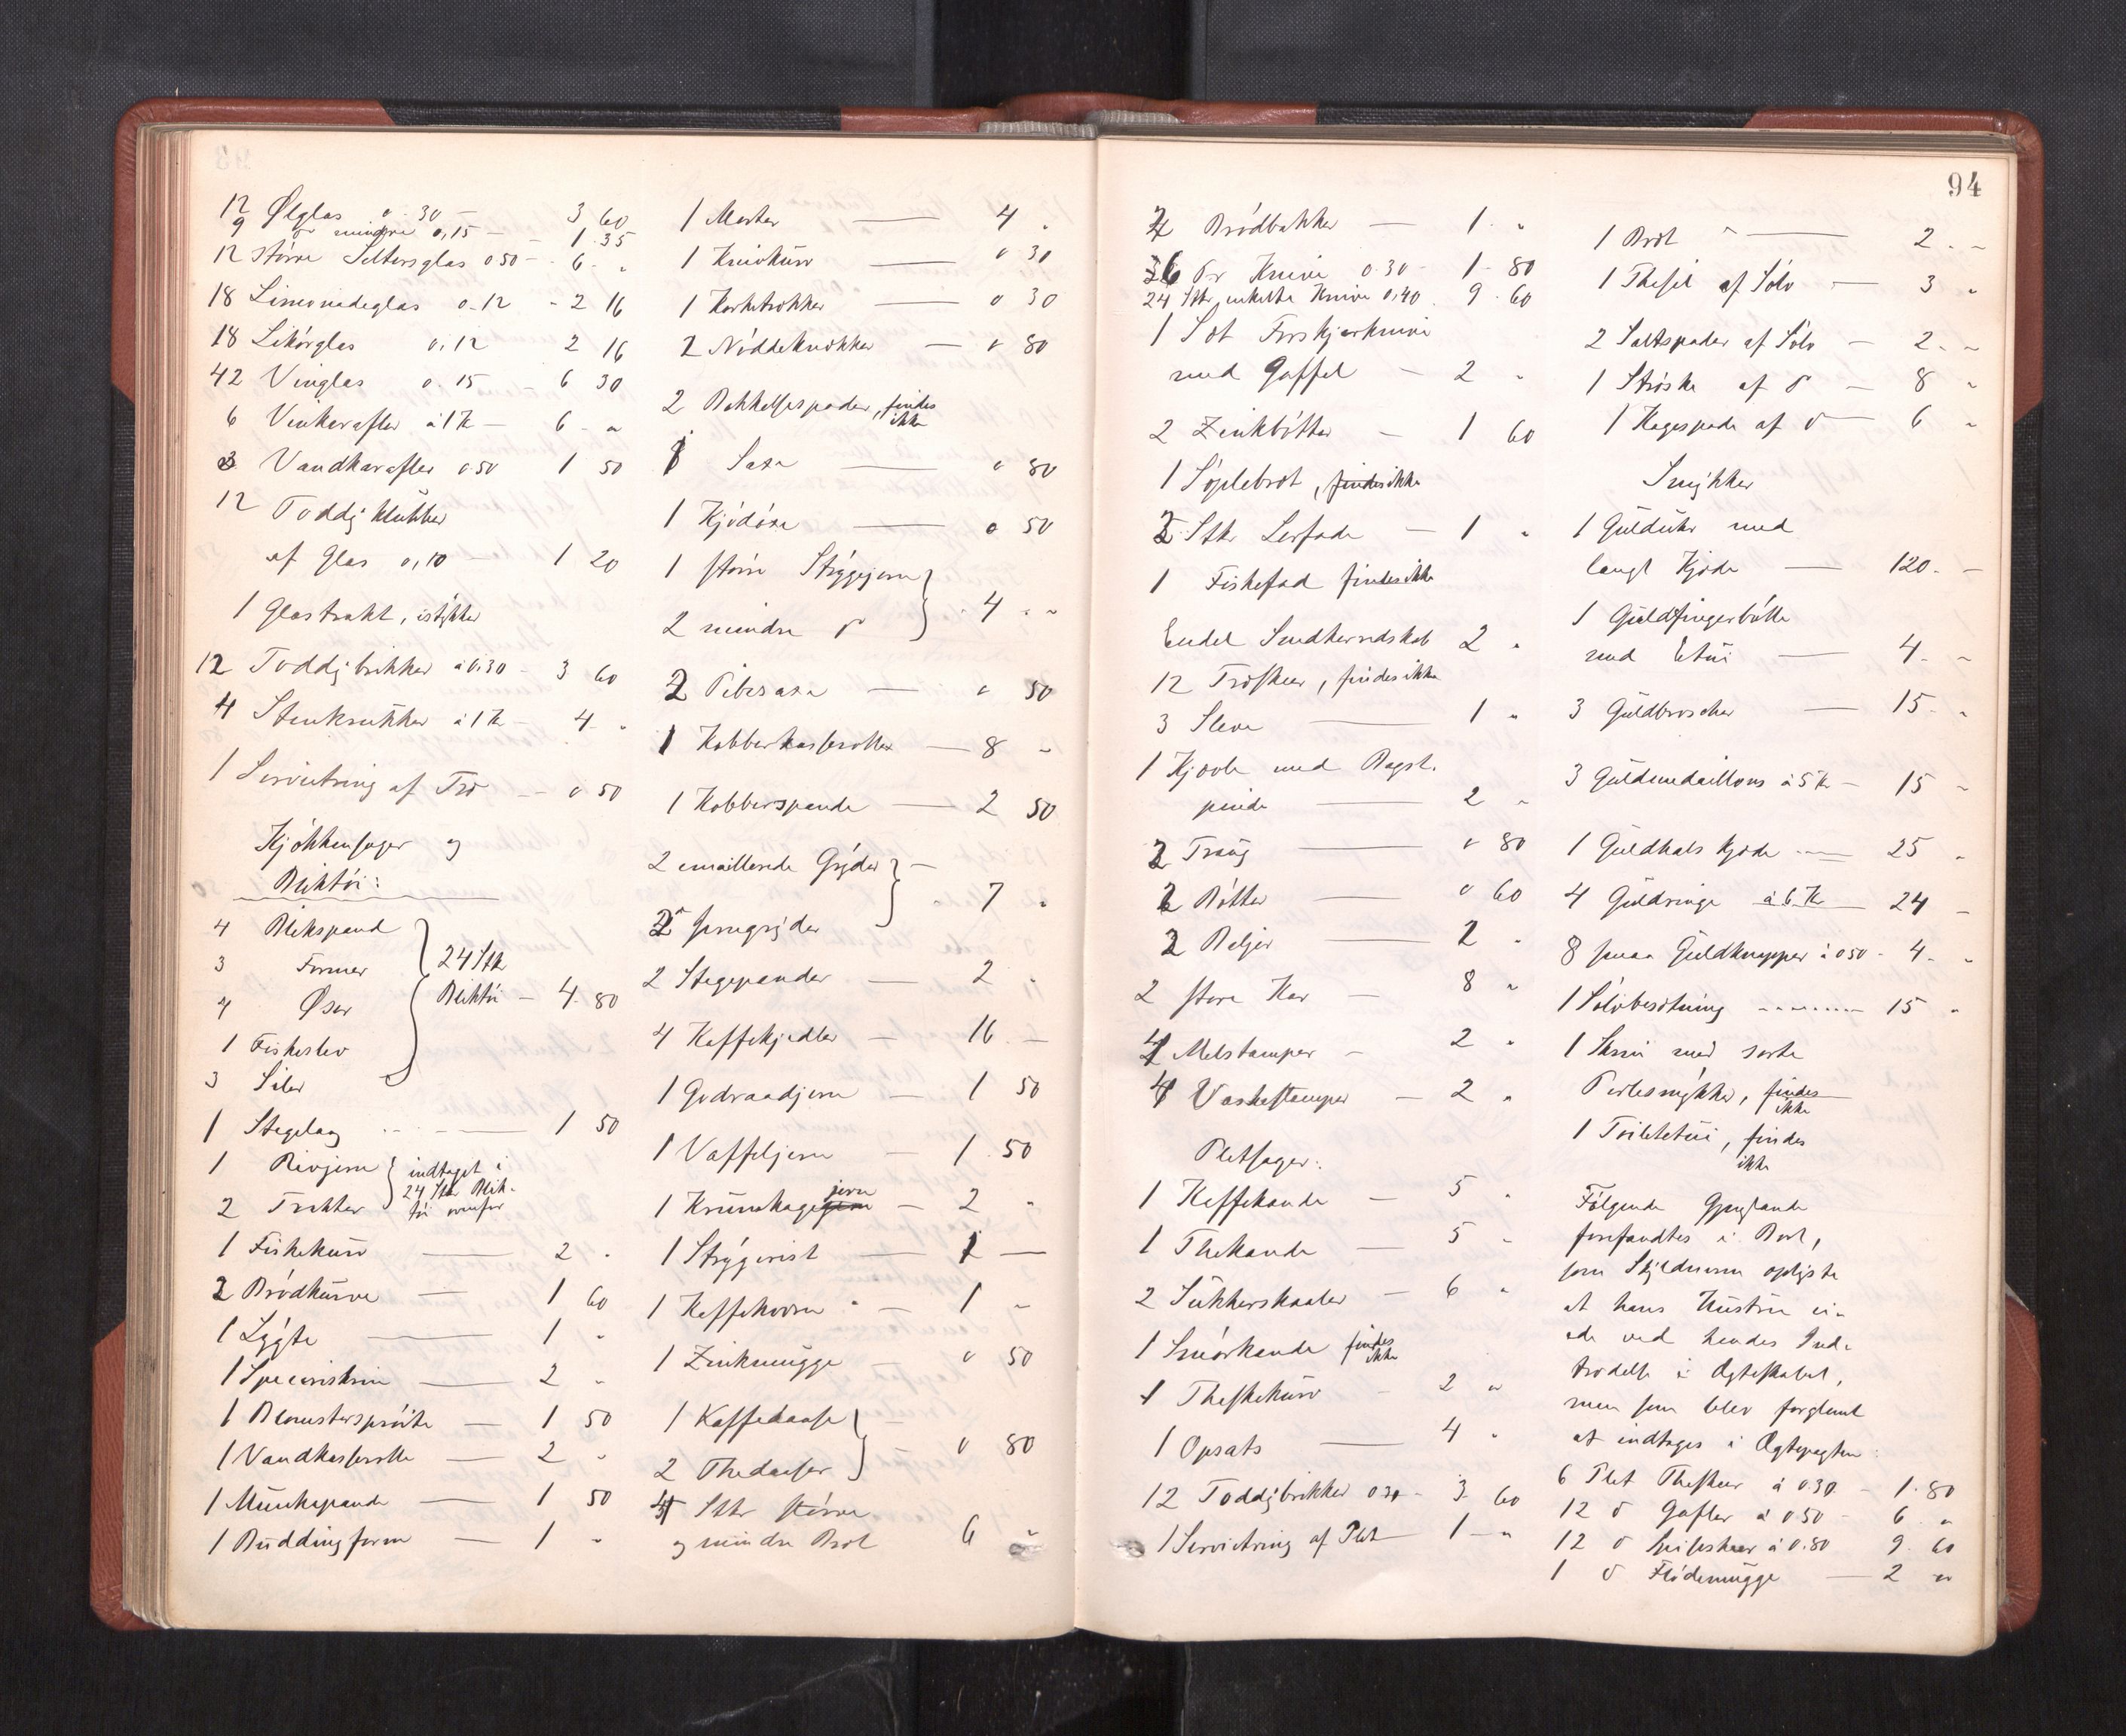 12 Ølglas 0.30 — 3 60
9 do mindre 0,15 — 1.35
12 större Seltersglas 0 50 — 6 "
18 Limonadeglas 0.12 - 2 16
18 Likörglas 0.12 2 16
42 Vinglas 0.15 - 6 30
6 Vinkarafler à 1 Kr — 6 "
3 Vandkarafler 0.50 1 50
12 Toddyklubber
af Glas 0,10 — 1 20
1 Glastrakt, istykker
12 Toddybrikker à 0.30 - 3 60
4 Stenkrukker à 1 Kr - 4 "
1 Servietring af Træ — 0 50
Kjökkensager og
Bliktöi:
4 Blikspand
3 Former
4 Øser
1 Fiskeslev
3 Siler
24 Stk
Bliktöi — 4.80
1 Stegelaag — 1 50
1 Rivjern
2 Trakter
indtaget i
24 Stk Blik-
töi ovenfor
1 Fiskekurv — 2 "
2 Brödkurve — 1 60
1 Lygte — 1 "
1 Speceriskrin — 2 "
1 Blomsterspröite — 1 50
1 Vandkasserolle — 2 "
1 Munkepande — 1 50
1 Buddingform — 1 "
1 Morter — 4 "
1 Knivkurv — 0 30
1 Korketrækker — 0 30
2 Nöddeknækker — 0 80
2 Bakkelsespader, findes
ikke
1 Saxe — 0 80
1 Kjödöxe — 0 50
1 större Strygejern
2 mindre do
4 "
2 Pibesaxe — 0 50
1 Kobberkasseroller — 8 "
1 Kobberspande — 2 50
2 emaillerede Gryder
2 Jerngryder
7 "
2 Stegepander — 2 "
4 Kaffekjedler — 16 —
1 Godraadjern — 1 50
1 Vaffeljern — 1.50
1 Krumkagejern — 2 "
1 Strygerist — 1 —
1 Kaffekværn — 1 "
1 Zinkmugge — 0 50
1 Kaffedaase
2 Thedaaser
0 80
4 Stk större
og mindre Bræt 6 "
94
2 Brödbakker — 1 "
6 Pr Knive 0.30 - 1.80
24 Stk enkelte Knive 0,40 9.60
1 Sæt Forskjærknive
med Gaffel — 2 "
2 Zinkbötter — 1 60
1 Søplebræt, findes ikke
2 Stk Lerfade — 1 "
1 Fiskefad findes ikke
Endel Smedkeredskab 2 "
12 Træskeer, findes ikke
3 Sleve — 1 "
1 Kjævle med Bagst.
pinde — 2 "
2 Traug — 0 80
2 Bötter — 0 60
2 Baljer — 2 "
2 store Kar — 8 "
4 Melstamper — 2 "
4 Vaskestamper — 2 "
Pletsager:
1 Kaffekande — 5 "
1 Thekande — 5 "
2 Sukkerskaaler — 6 "
1 Smörkande findes
ikke
1 Theskekurv - 2 "
1 Opsats — 4 "
12 Toddybrikker 0 30 - 3 60
1 Servietring af Plet 1 "
1 Bræt — 2 "
1 Thesil af Sölv — 3 "
2 Saltspader af Sölv — 2 "
1 Ströske af do — 8 "
1 Kagespade af do — 6 "
Smykker
1 Gulduhr med
langt Kjæde — 120 —
1 Guldfingerbölle
med Etui — 4 "
3 Guldbroscher — 15 "
3 Guldmedaillons à 5 Kr — 15 "
1 Guldhalskjæde — 25 "
4 Guldringe à 6 Kr — 24 —
8 smaa Guldknapper à 0 50 - 4 "
1 Sölvbesætning — 15 "
1 Skrin med sorte
Perlesmykker, findes
ikke
1 Toiletetui, findes
ikke
Fölgende Gjenstande
forefandtes i Boet,
som Skyldneren oplyste
at hans Hustru ei-
ede ved hendes Ind-
trædelse i Ægteskabet,
men som blev forglemt
at indtages i Ægtepagten:
6 Plet Theskeer à 0.30 - 1.80
12 do Gafler à 0 50 - 6 "
12 do Spiseskeer à 0.80 9.60
1 do Flödemugge — 2 "